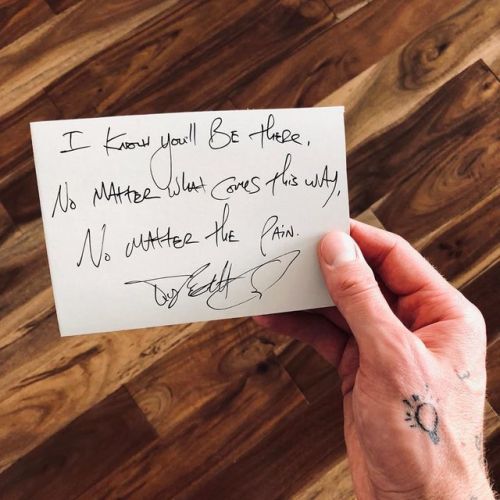 I Know you'll Be there,
No matter what comes this way,
No matter the Pain.